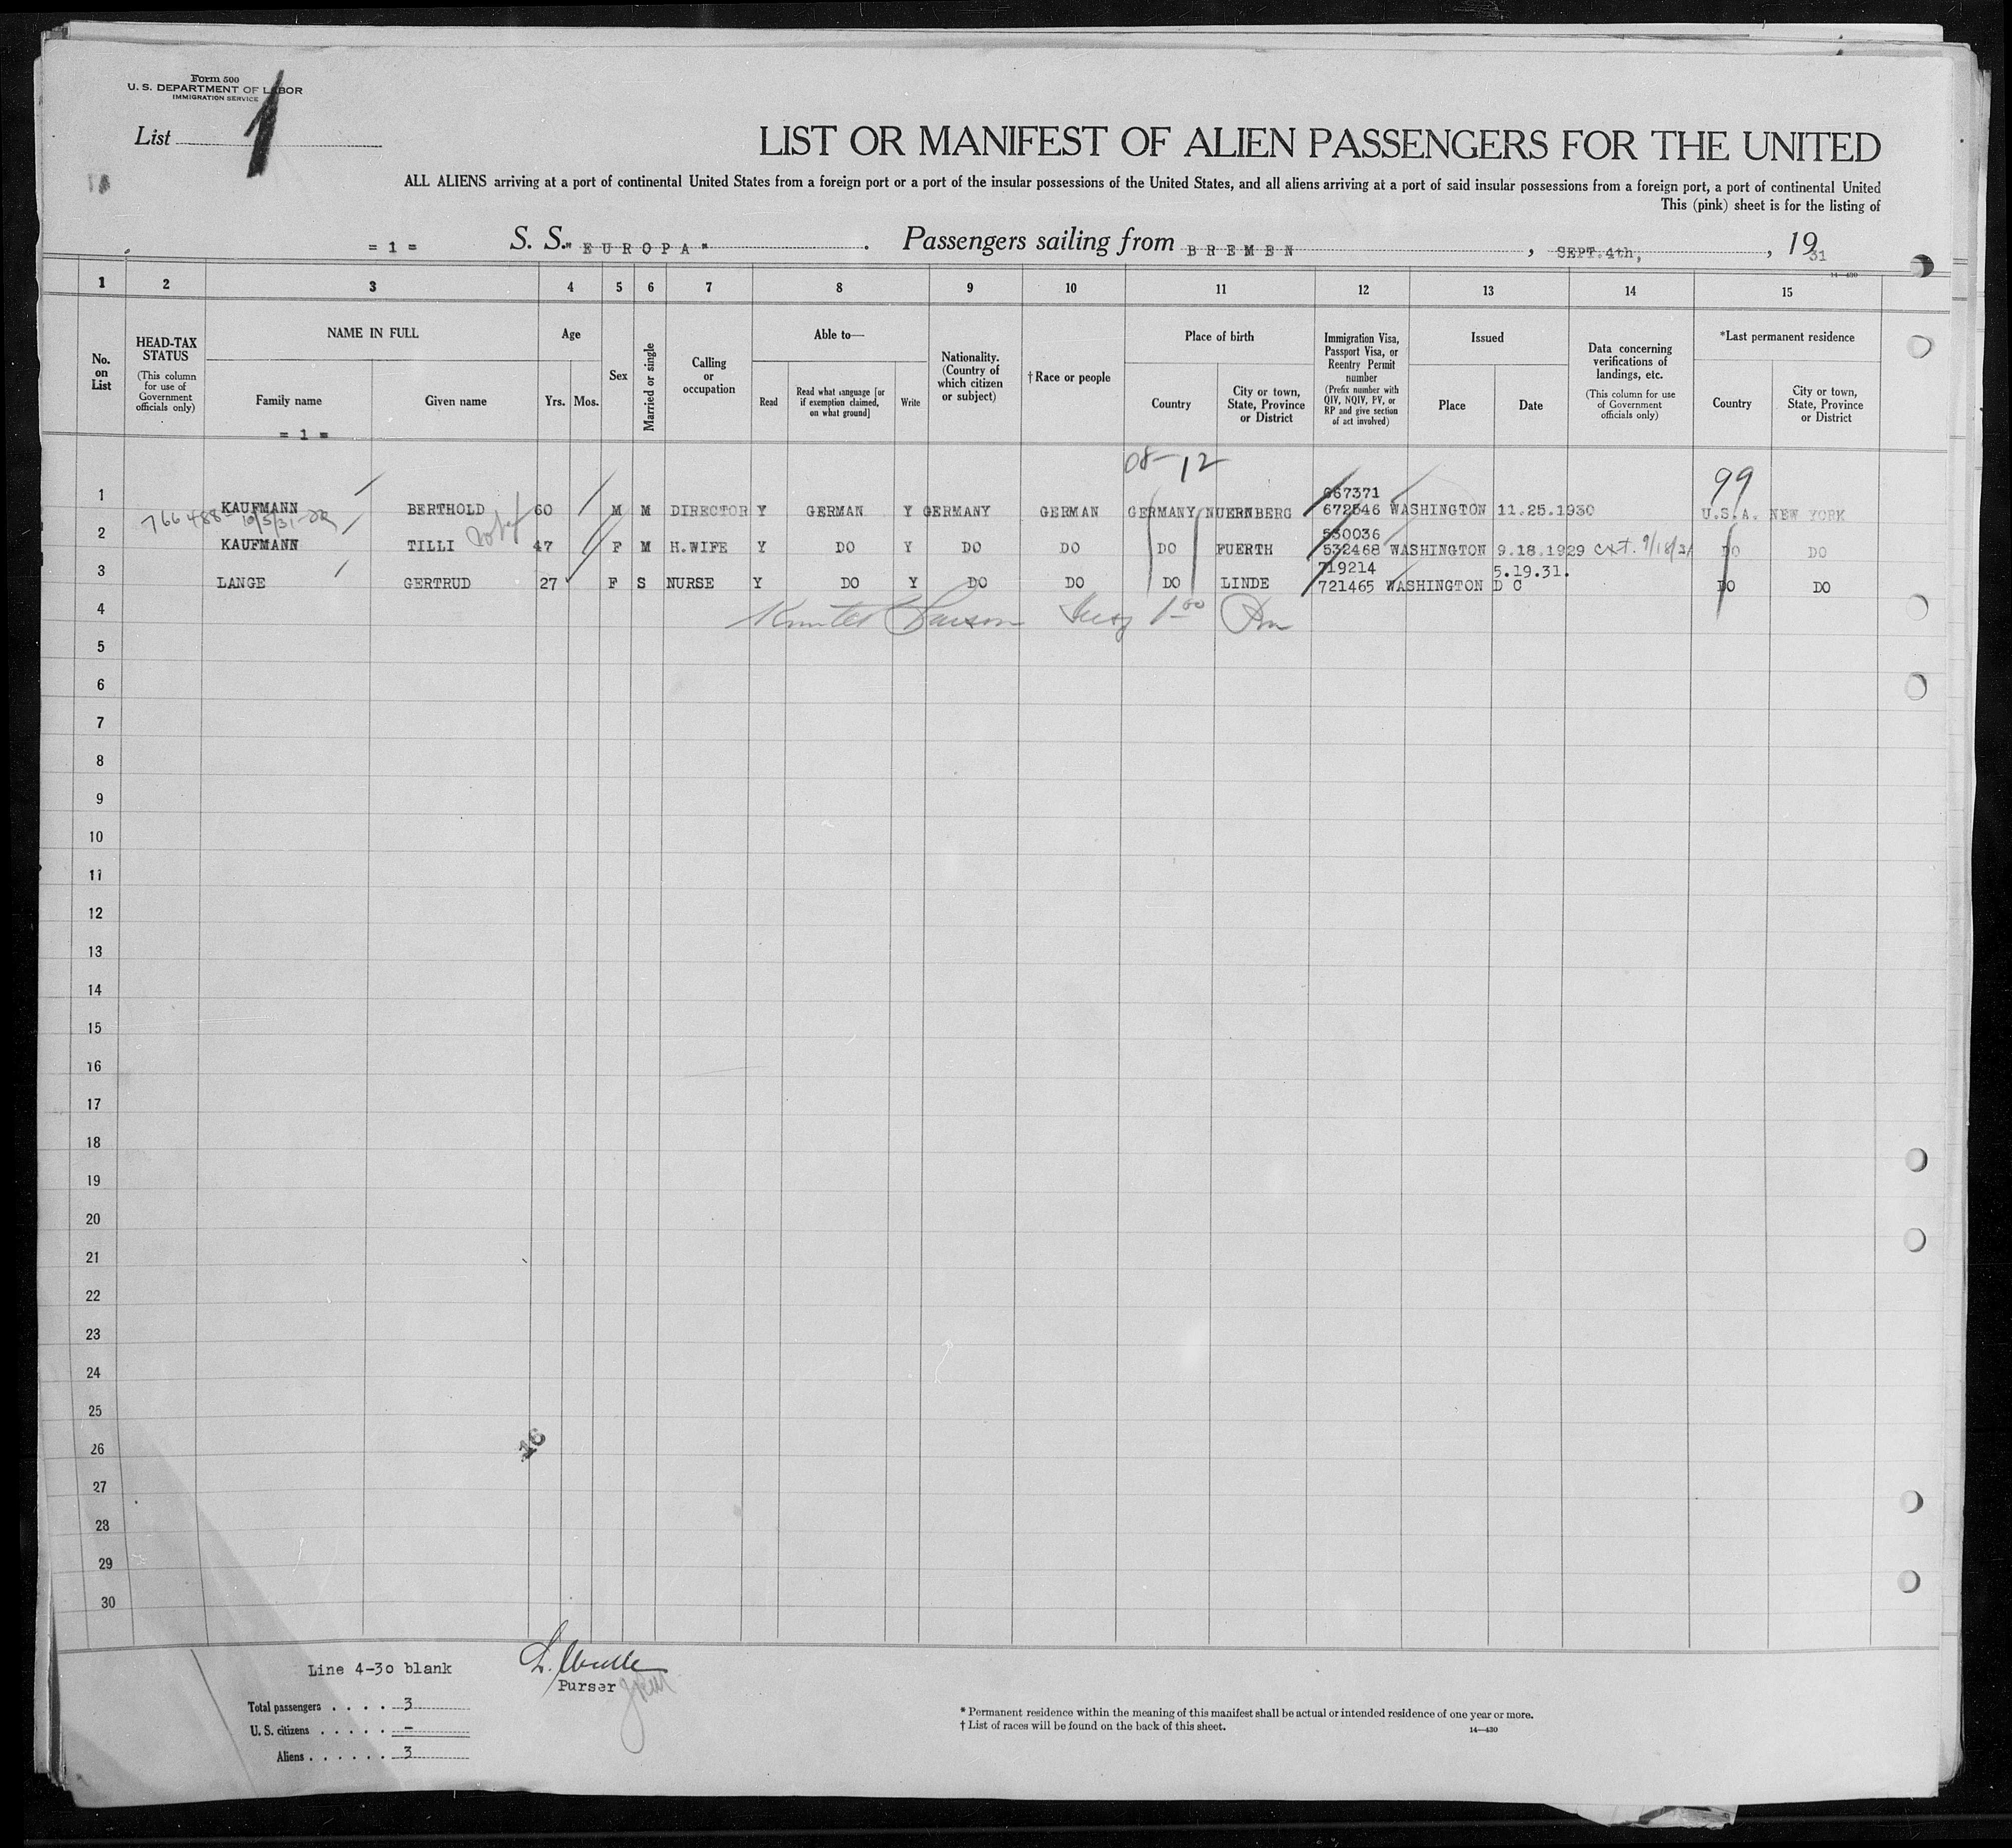 Form 500
U. S. DEPARTMENT OF LABOR
IMMIGRATION SERVICE
List 1
LIST OR MANIFEST OF ALIEN PASSENGERS FOR THE UNITED
ALL ALIENS arriving at a port of continental United States from a foreign port or a port of the insular possessions of the United States, and all aliens arriving at a port of said insular possessions from a foreign port, a port of continental United
This (pink) sheet is for the listing of
= 1 = S. S. "EUROPA" . Passengers sailing from BREMEN , SEPT.4th, , 1931
14—430
1 2 3 4 5 6 7 8 9 10 11 12 13 14 15
No. on List
HEAD-TAX STATUS (This column for use of Government officials only)
NAME IN FULL
Family name
Given name
= 1 =
Age
Yrs. Mos.
Sex
Married or single
Calling or occupation
Able to—
Read
Read what language [or if exemption claimed, on what ground]
Write
Nationality. (Country of which citizen or subject)
†Race or people
Place of birth
Country
City or town, State, Province or District
Immigration Visa, Passport Visa, or Reentry Permit number (Prefix number with QIV, NQIV, PV, or RP and give section of act involved)
Issued
Place
Date
Data concerning verifications of landings, etc. (This column for use of Government officials only)
*Last permanent residence
Country
City or town, State, Province or District
08-12
99
667371
1 KAUFMANN BERTHOLD 60 M M DIRECTOR Y GERMAN Y GERMANY GERMAN GERMANY NUERNBERG 672546 WASHINGTON 11.25.1930 U.S.A. NEW YORK
766488- 10/5/31
530036
2 KAUFMANN TILLI 47 F M H.WIFE Y DO Y DO DO DO FUERTH 532468 WASHINGTON 9.18.1929 ext. 9/18/31 DO DO
719214 5.19.31.
3 LANGE GERTRUD 27 F S NURSE Y DO Y DO DO DO LINDE 721465 WASHINGTON D C DO DO
4
5
6
7
8
9
10
11
12
13
14
15
16
17
18
19
20
21
22
23
24
25
26
16
27
28
29
30
Line 4-30 blank
Purser
Total passengers . . . . 3
U. S. citizens . . . . . –
Aliens . . . . . . 3
* Permanent residence within the meaning of this manifest shall be actual or intended residence of one year or more.
† List of races will be found on the back of this sheet.
14—430